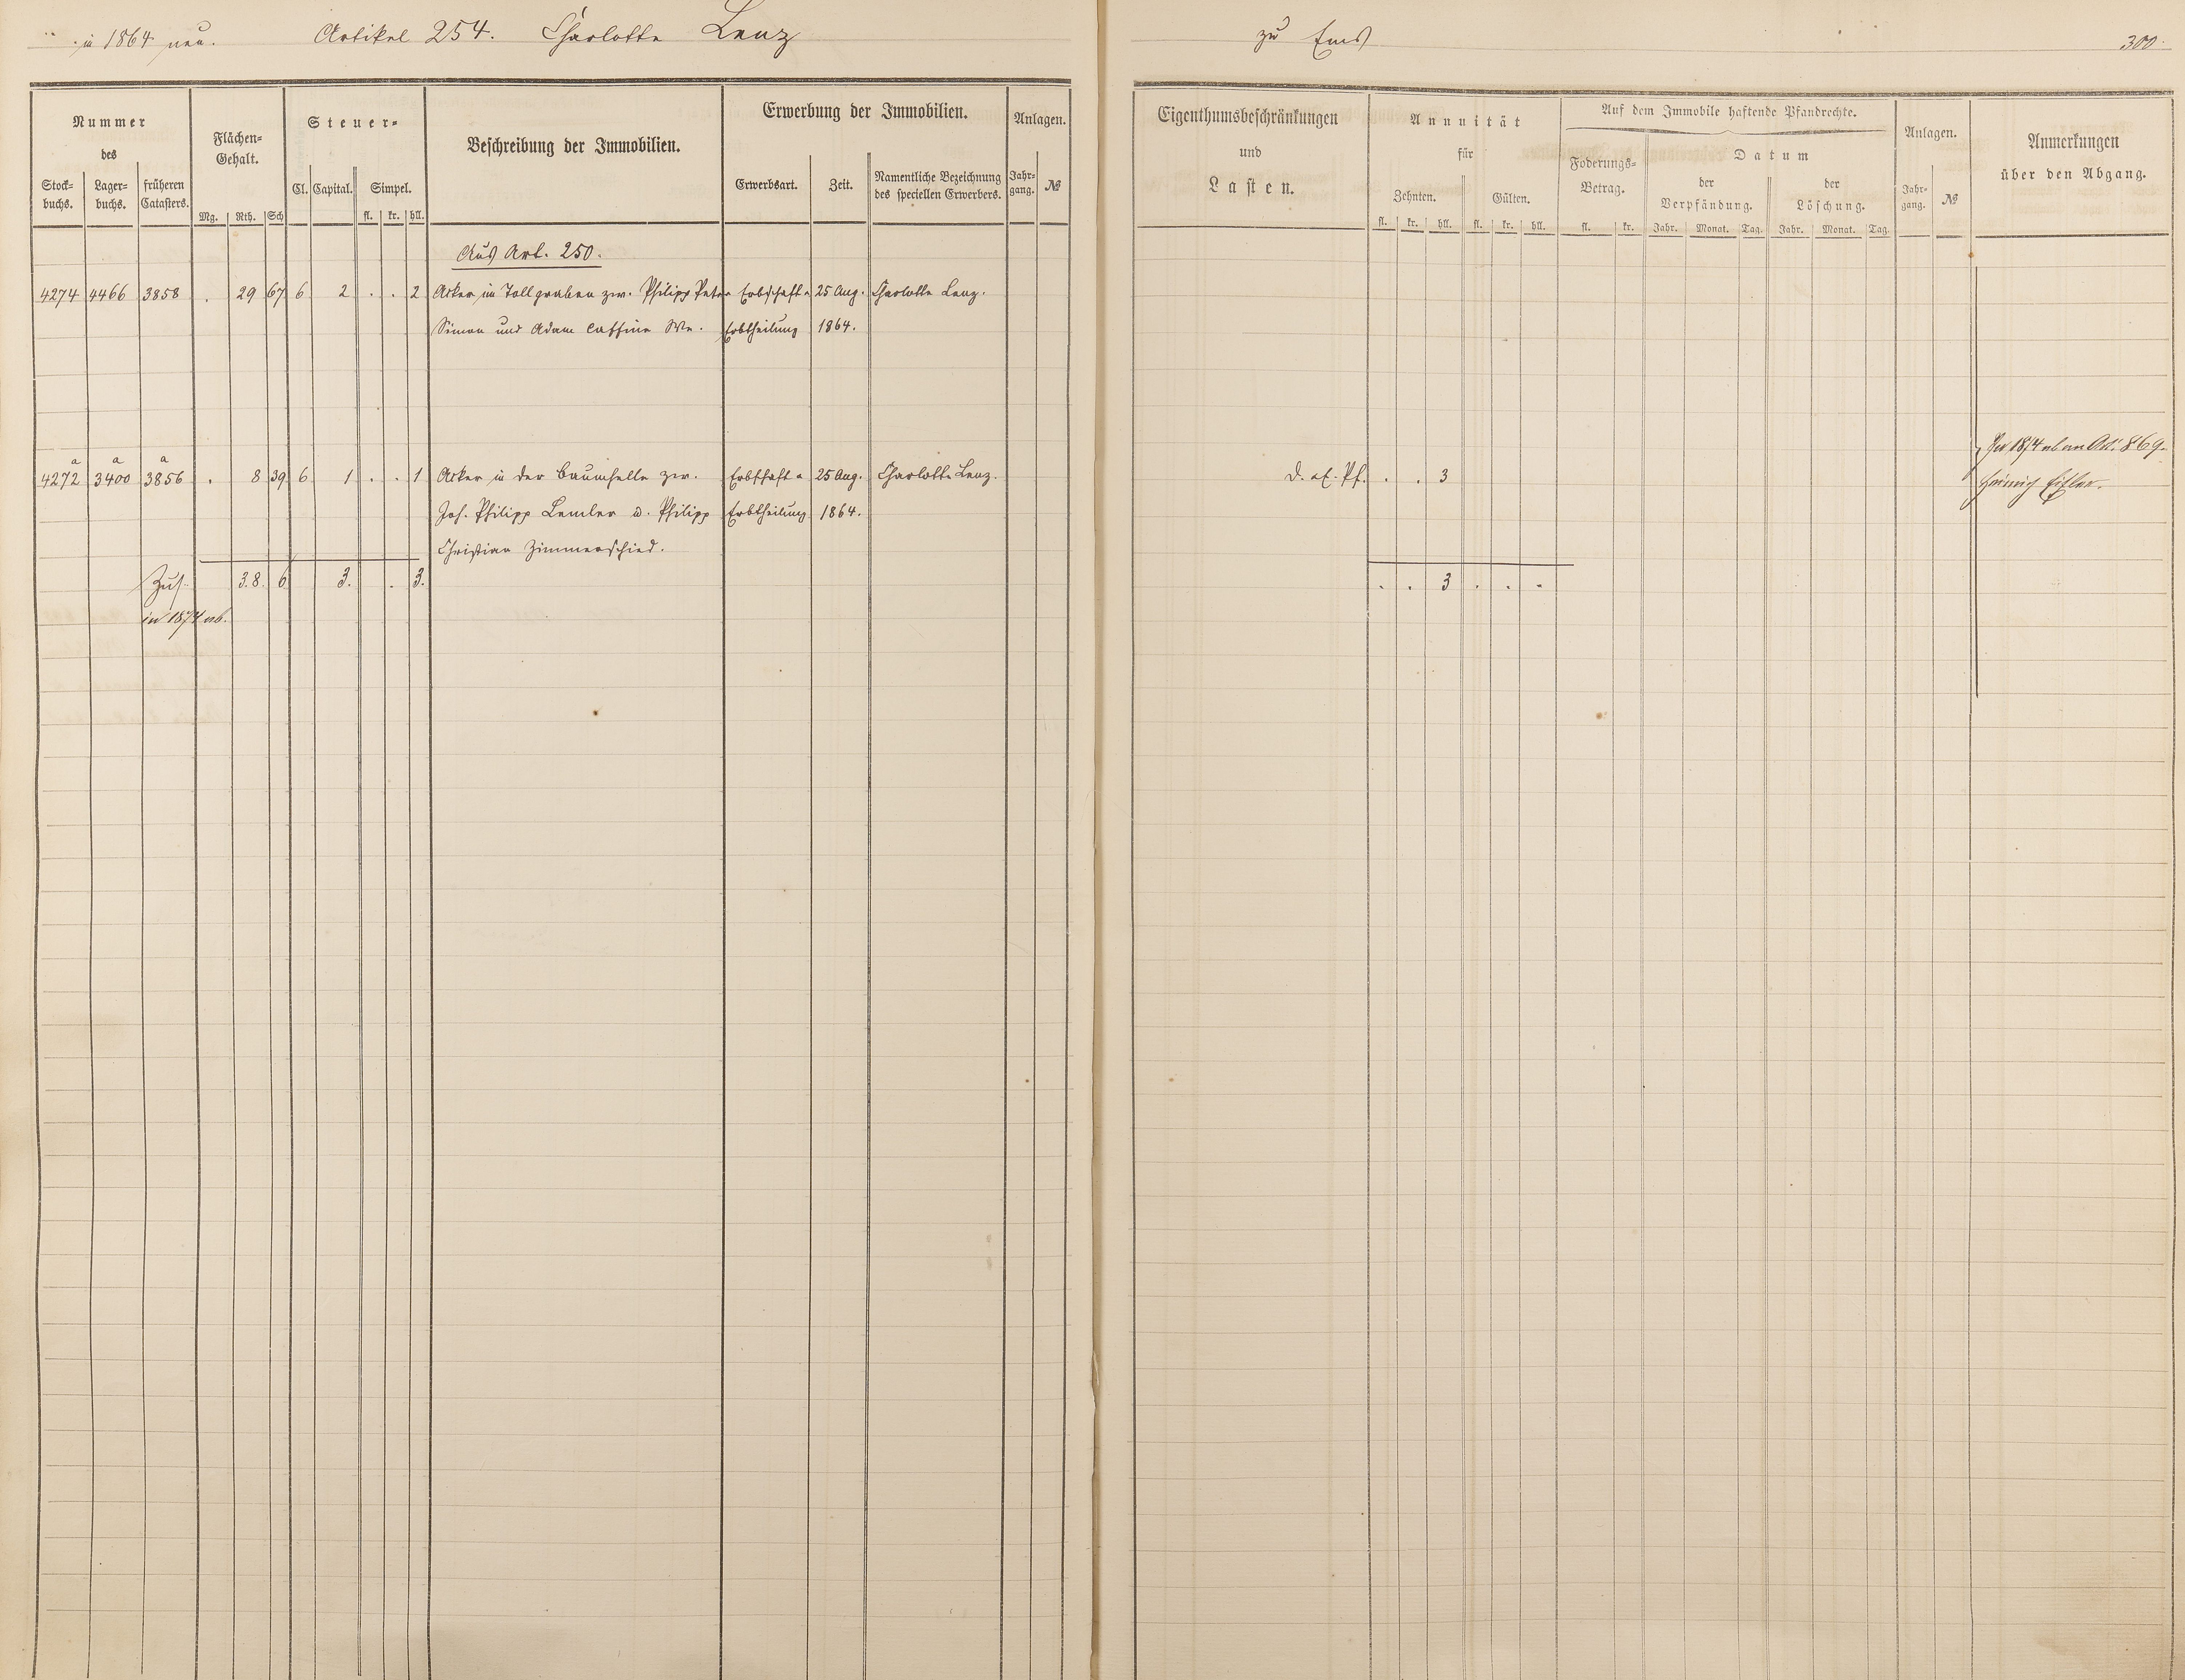 in 1864 neu. Artikel 254. Charlotte Lenz
zu Ems 300.
Nummer
des
Stock-
buchs.
Lager-
buchs.
früheren
Catasters.
Flächen-
Gehalt.
Mg. Rth. Sch
Steuer-
Cl. Capital. Simpel.
fl. kr. hll.
Beschreibung der Immobilien.
Erwerbung der Immobilien.
Erwerbsart. Zeit.
Namentliche Bezeichnung
des speciellen Erwerbers.
Anlagen.
Jahr-
gang.
№
Eigenthumsbeschränkungen
und
Lasten.
Annuität
für
Zehnten. Gülten.
fl. kr. hll. fl. kr. hll.
Auf dem Immobile haftende Pfandrechte.
Foderungs-
Betrag.
fl. kr.
Datum
der
Verpfändung.
Jahr. Monat. Tag.
der
Löschung.
Jahr. Monat. Tag.
Anlagen.
Jahr-
gang.
№
Anmerkungen
über den Abgang.
Aus Art. 250.
4274 4466 3858 . 29 67 6 2 . . 2 Acker im Tollgraben zw. Philipp Peter Erbschaft u. 25 Aug. Charlotte Lenz.
Simon und Adam Caffine We. Erbtheilung 1864.
a a a
4272 3400 3856 . 8 39 6 1 . . 1 Acker in der Baumhelle zw. Erbschaft u. 25 Aug. Charlotte Lenz. D. . Pf. . . 3
Joh. Philipp Lemler u. Philipp Erbtheilung 1864.
Christian Zimmerschied.
In 1874 ab an Art. 869.
Heinrich
Zus. 38. 6 3. . 3. . . 3 . . .
in 1874 ab.